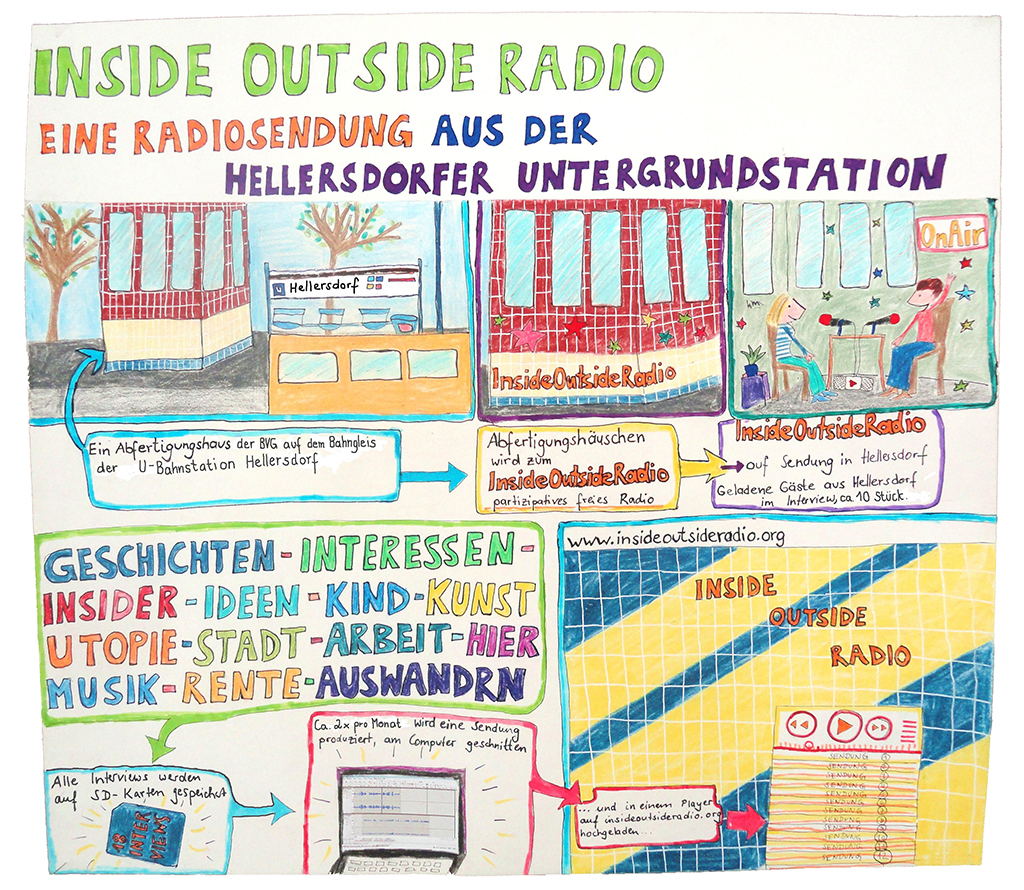 INSIDE OUTSIDE RADIO
EINE RADIOSENDUNG AUS DER
HELLERSDORFER UNTERGRUNDSTATION
U Hellersdorf
InsideOutsideRadio
OnAir
hm..
Ein Abfertigungshaus der BVG auf dem Bahngleis
der U-Bahnstation Hellersdorf
Abfertigungshäuschen
wird zum
InsideOutsideRadio
partizipatives freies Radio
InsideOutsideRadio
auf Sendung in Hellersdorf
Geladene Gäste aus Hellersdorf
im Interview, ca 10 Stück.
GESCHICHTEN-INTERESSEN-
INSIDER-IDEEN-KIND-KUNST
UTOPIE-STADT-ARBEIT-HIER
MUSIK-RENTE-AUSWANDRN
Alle Interviews werden
auf SD-Karten gespeichert
18
INTER
VIEWS
Ca. 2x pro Monat wird eine Sendung
produziert, am Computer geschnitten
... und in einem Player
auf insideoutsideradio.org
hochgeladen...
www.insideoutsideradio.org
INSIDE
OUTSIDE
RADIO
SENDUNG
SENDUNG
SENDUNG
SENDUNG
SENDUNG
SENDUNG
SENDUNG
SENDUNG
SENDUNG
SENDUNG
SENDUNG
SENDUNG